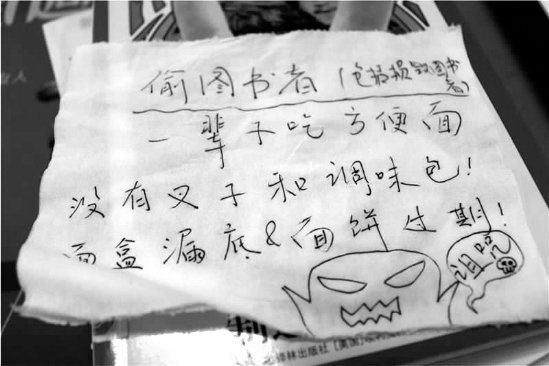 偷图书者（包括损毁图书者）
一辈子吃方便面
没有叉子和调味包！
面盒漏底&面饼过期！
诅咒
译林出版社